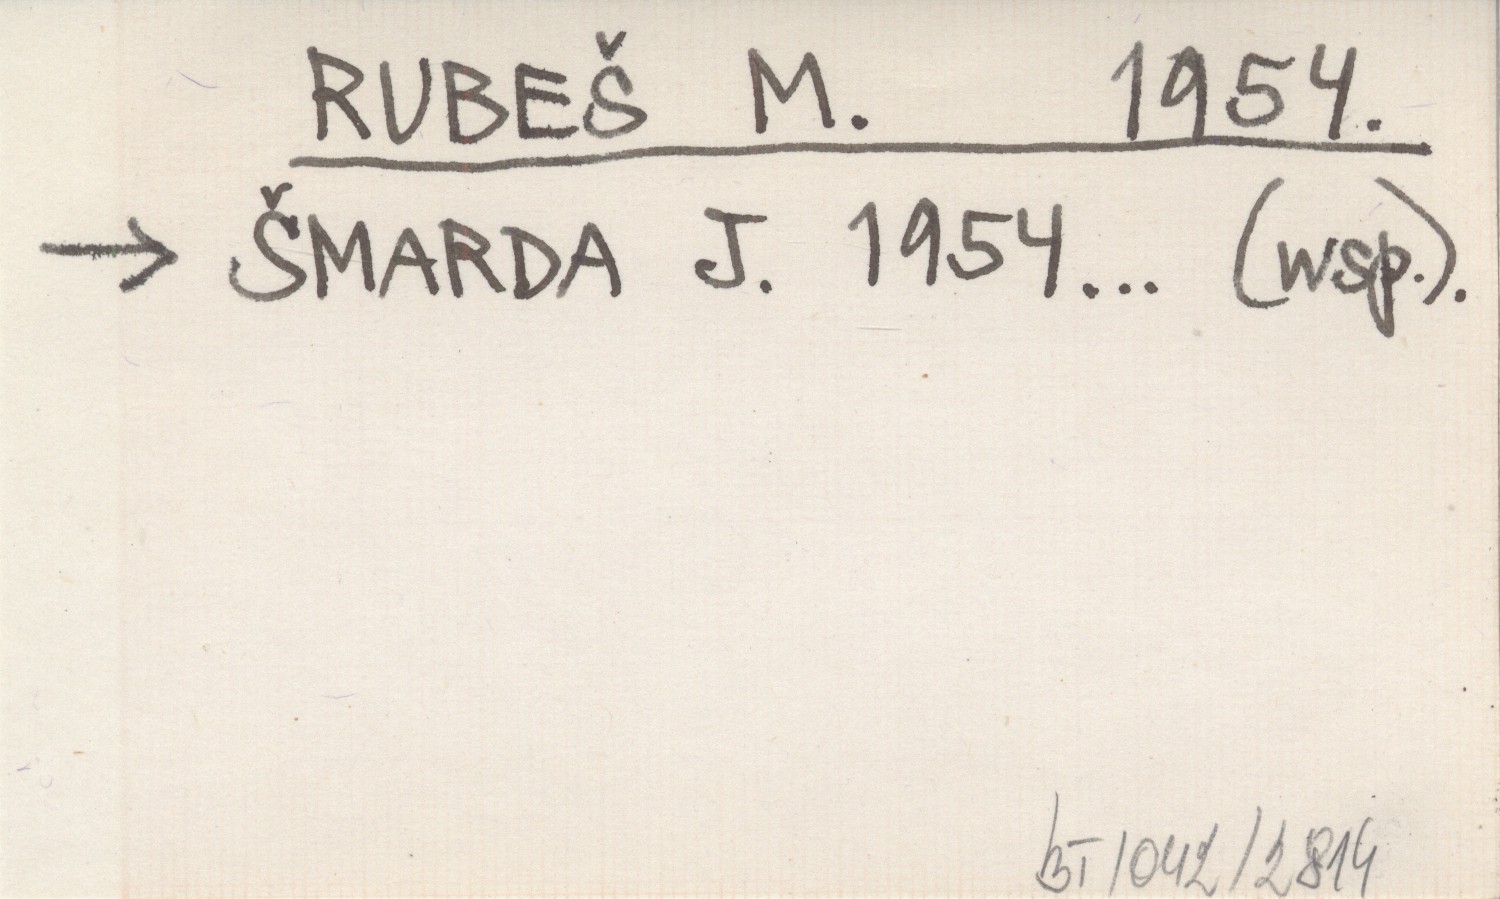 RUBEŠ M. 1954.
→ ŠMARDA J. 1954... (wsp.).
BT/042/2814